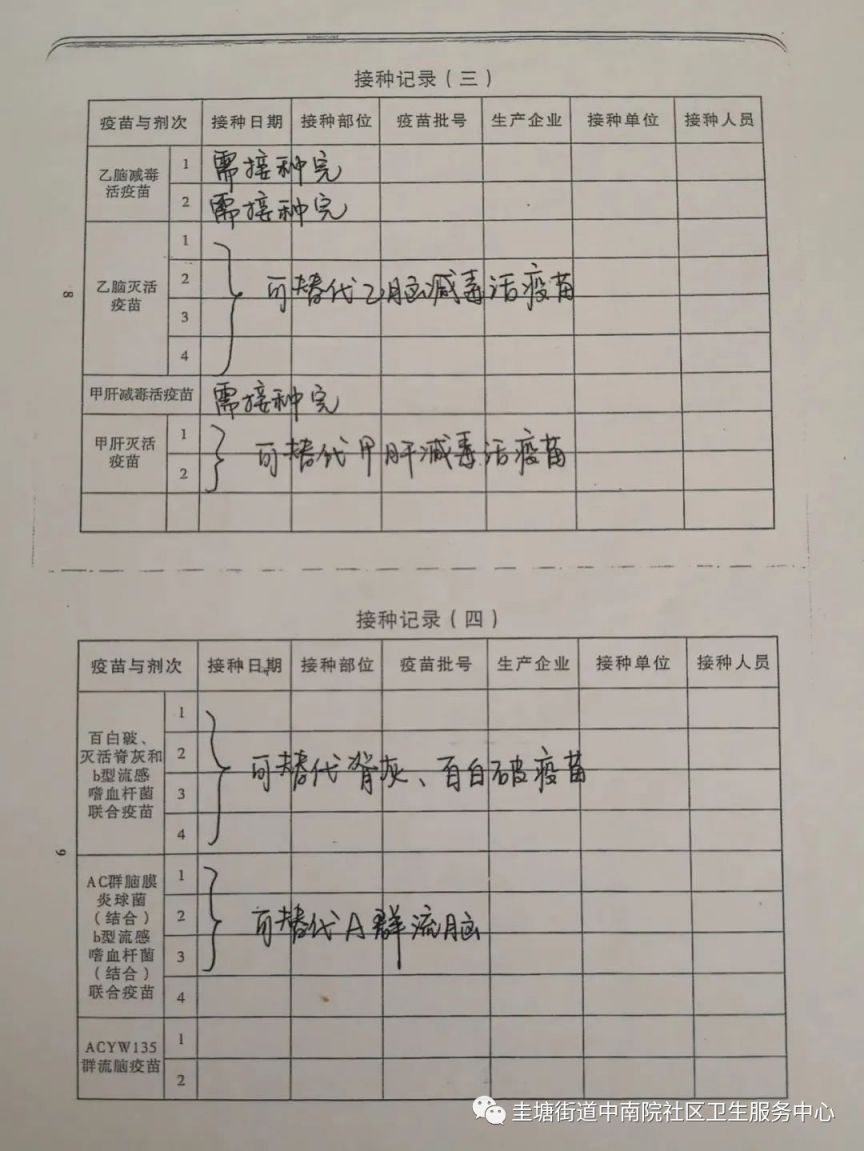 接种记录（三）
疫苗与剂次 接种日期 接种部位 疫苗批号 生产企业 接种单位 接种人员
乙脑减毒
活疫苗
1 需接种完
2 需接种完
8
乙脑灭活
疫苗
1
2 可替代乙脑减毒活疫苗
3
4
甲肝减毒活疫苗 需接种完
甲肝灭活
疫苗
1
可替代甲肝减毒活疫苗
2
接种记录（四）
疫苗与剂次 接种日期 接种部位 疫苗批号 生产企业 接种单位 接种人员
百白破、
灭活脊灰和
b型流感
嗜血杆菌
联合疫苗
1
2 可替代脊灰、百白破疫苗
3
4
9
AC群脑膜
炎球菌
（结合）
b型流感
嗜血杆菌
（结合）
联合疫苗
1
2 可替代A群流脑
3
4
ACYW135
群流脑疫苗
1
2
圭塘街道中南院社区卫生服务中心